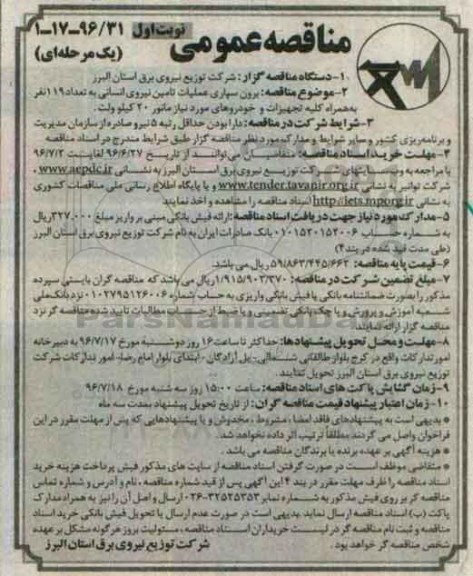 نوبت اول
۹۶/۳۱–۱۷–۱
مناقصه عمومی
(یک مرحله‌ای)
۱-دستگاه مناقصه گزار: شرکت توزیع نیروی برق استان البرز
۲-موضوع مناقصه: برون سپاری عملیات تامین نیروی انسانی به تعداد ۱۱۹ نفر
به همراه کلیه تجهیزات و خودروهای مورد نیاز مانور ۲۰ کیلو ولت.
۳-شرایط شرکت در مناقصه: دارا بودن حداقل رتبه ۵ نیرو صادره از سازمان مدیریت
و برنامه‌ریزی کشور و سایر شرایط و مدارک مورد نظر مناقصه گزار طبق شرایط مندرج در اسناد مناقصه
۴-مهلت خرید اسناد مناقصه: متقاضیان می‌توانند از تاریخ ۹۶/۶/۲۷ لغایت ۹۶/۷/۲
با مراجعه به وب سایتهای شرکت توزیع نیروی برق استان البرز به نشانی www.aepdc.ir،
شرکت توانیر به نشانی www.tender.tavanir.org.ir و یا پایگاه اطلاع رسانی ملی مناقصات کشوری
به نشانی http://iets.mporg.ir اسناد مناقصه را مشاهده و اخذ نمایند
۵-مدارک مورد نیاز جهت دریافت اسناد مناقصه: ارائه فیش بانکی مبنی بر واریز مبلغ ۳۲۷،۰۰۰ ریال
به شماره حساب ۰۱۰۱۵۲۰۱۵۲۰۰۶ بانک صادرات ایران به نام شرکت توزیع نیروی برق استان البرز
(طی مدت قید شده در بند۴)
۶-قیمت پایه مناقصه: ۵۹/۸۶۳/۴۴۵/۶۶۲ ریال می‌باشد.
۷-مبلغ تضمین شرکت در مناقصه: ۱/۹۱۵/۹۰۳/۳۷۰ ریال می باشد که مناقصه گران بایستی سپرده
مذکور را بصورت ضمانتنامه بانکی یا فیش بانکی واریزی به حساب شماره ۰۱۰۲۷۹۵۱۲۶۰۰۶ نزد بانک ملی
شعبه آموزش و پرورش و یا چک بانکی تضمینی و یا ضبط از حساب مطالبات تایید شده مناقصه گر نزد
مناقصه گزار ارائه نمایند.
۸-مهلت و محل تحویل پیشنهادها: حداکثر تا ساعت ۱۶ روز دوشنبه مورخ ۹۶/۷/۱۷ به دبیرخانه
امور تدارکات واقع در کرج بلوار طالقانی شمالی - پل آزادگان - ابتدای بلوار امام رضا- امور تدارکات شرکت
توزیع نیروی برق استان البرز تحویل نمایند.
۹-زمان گشایش پاکت های اسناد مناقصه: ساعت ۱۵:۰۰ روز سه شنبه مورخ ۹۶/۷/۱۸
۱۰-زمان اعتبار پیشنهاد قیمت مناقصه گران: از تاریخ تحویل پیشنهاد بمدت سه ماه
* بدیهی است به پیشنهادهای فاقد امضا، مشروط، مخدوش و یا پیشنهادهایی که پس از مهلت مقرر در این
فراخوان واصل می گردند مطلقا ترتیب اثر داده نخواهد شد.
* هزینه آگهی بر عهده برنده یا برندگان مناقصه می باشد.
* متقاضی موظف است در صورت گرفتن اسناد مناقصه از سایت های مذکور فیش پرداخت هزینه خرید
اسناد مناقصه را ظرف مهلت مقرر در بند ۴ این آگهی پس از قید شماره مناقصه، نام و آدرس و شماره تماس
مناقصه گر بر روی فیش مذکور به شماره نمابر ۳۲۵۲۵۳۵۳-۰۲۶ ارسال و اصل آن را نیز به همراه مدارک
پاکت (ب) اسناد مناقصه ارسال نماید. بدیهی است در صورت عدم ارسال یا تحویل فیش بانکی خرید اسناد
مناقصه و ثبت نام مناقصه گر در لیست خریداران اسناد مناقصه، مسئولیت بروز هرگونه مشکل بر عهده
شخص مناقصه گر خواهد بود.
شرکت توزیع نیروی برق استان البرز